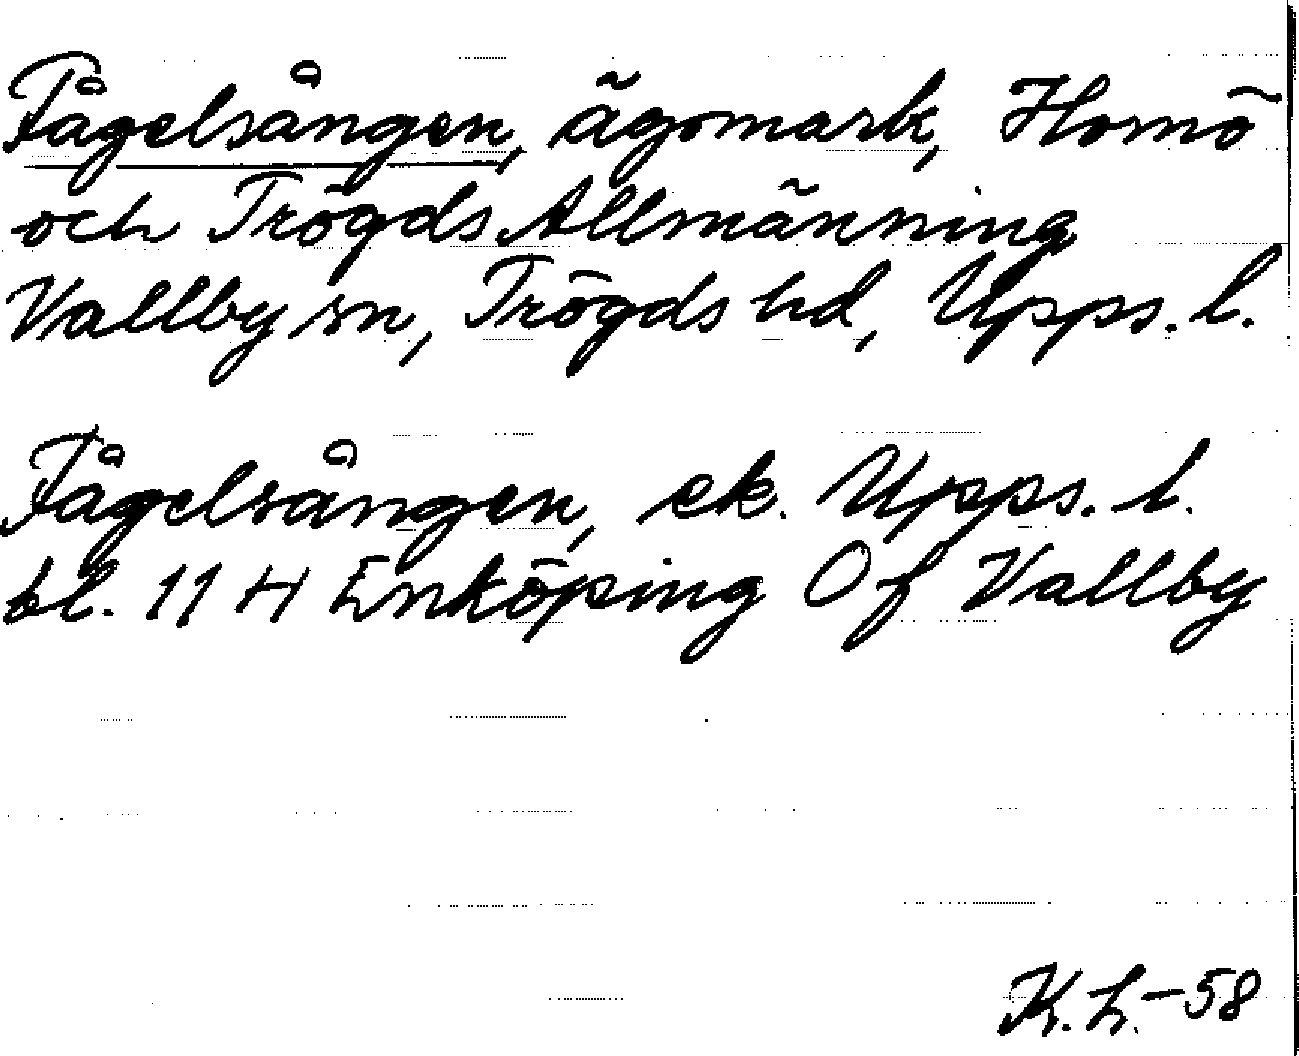 Fågelsången, ägomark, Homö
och Trögds Allmänning
Vallby sn, Trögds hd, Upps. l.
Fågelsången, ek. Upps. l.
bl. 11 H Enköping Of Vallby
K. L. -58